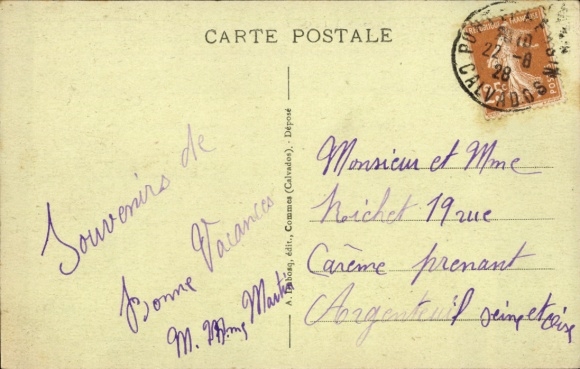 CARTE POSTALE
22 -8
28
CALVADOS
Souvenirs de
Bonne Vacances
M. Mme Martin
A. Dubosq, édit., Commes (Calvados). - Déposé
Monsieur et Mme
Richet 19 rue
Carème prenant
Argenteuil seine et oise